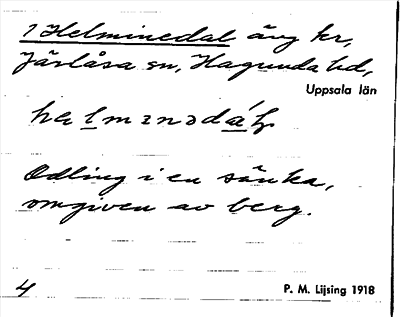 1 Helminedal äng kr,
Järlåsa sn, Hagunda hd,
Uppsala län
Odling i en sänka,
omgiven av berg.
4 P. M. Lijsing 1918